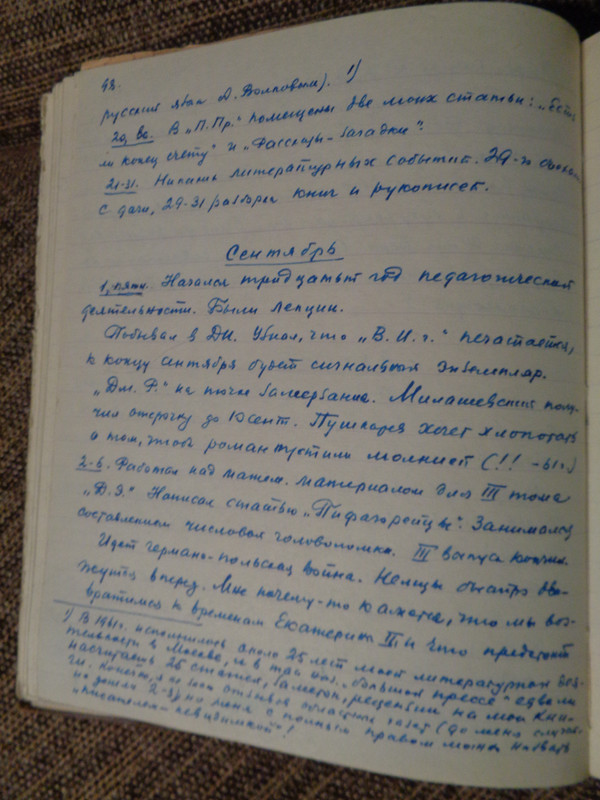 48.
русский язык А. Волковым). 1)
20 вс. В „П.Пр." помещены две моих статьи: „Есть
ли конец счету" и „Рассказы-загадки".
21-31. Никаких литературных событий. 29-го
с дачи, 29-31 разборка книг и рукописей.
Сентябрь
1, пятн. Начался тридцатый год педагогической
деятельности. Были лекции.
Побывал в ДИ. Узнал, что „В. И. г." печатается,
к концу сентября будет сигнальный экземпляр.
„Дм. Р." на точке замерзания. Милашевский полу-
чил отсрочку до 10 сент. Пушкарев хочет хлопотать
о том, чтоб роман пустили молнией (!! -61 г.)
2-6. Работал над матем. материалом для III тома
„Д.Э." Написал статью „Пифагорейцы". Занимался
составлением числовой головоломки. III выпуск
Идет германо-польская война. Немцы быстро дви-
жутся вперед. Мне почему-то кажется, что мы воз-
вратимся к временам Екатерины II, и что предстоит
1) В 1961 г. исполнилось около 25 лет моей литературной дея-
тельности в Москве, и в три
насчитать 26 статей, заметок, рецензий на мои кни-
ги. Конечно, я не
но дошло 2-3) но меня с полным правом можно назвать
„писателем-невидимкой"!